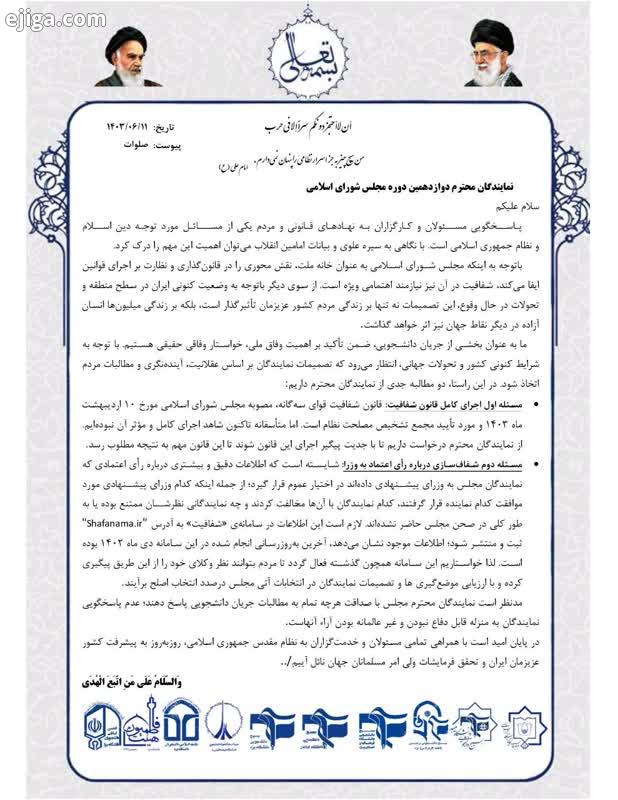 ejiga.com
بسمه تعالی
أن لا أحتجز دونكم سراً إلا في حرب
تاریخ: ۱۴۰۳/۰۶/۱۱
پیوست: صلوات
من هیچ چیز به جز اسرار نظامی را پنهان نمی‌دارم.
امام علی (ع)
نمایندگان محترم دوازدهمین دوره مجلس شورای اسلامی
سلام علیکم
پاسخگویی مسئولان و کارگزاران به نهادهای قانونی و مردم یکی از مسائل مورد توجه دین اسلام
و نظام جمهوری اسلامی است. با نگاهی به سیره علوی و بیانات امامین انقلاب می‌توان اهمیت این مهم را درک کرد.
باتوجه به اینکه مجلس شورای اسلامی به عنوان خانه ملت، نقش محوری را در قانون‌گذاری و نظارت بر اجرای قوانین
ایفا می‌کند، شفافیت در آن نیز نیازمند اهتمامی ویژه است. از سوی دیگر باتوجه به وضعیت کنونی ایران در سطح منطقه و
تحولات در حال وقوع، این تصمیمات نه تنها بر زندگی مردم کشور عزیزمان تأثیرگذار است، بلکه بر زندگی میلیون‌ها انسان
آزاده در دیگر نقاط جهان نیز اثر خواهد گذاشت.
ما به عنوان بخشی از جریان دانشجویی، ضمن تأکید بر اهمیت وفاق ملی، خواستار وفاقی حقیقی هستیم. با توجه به
شرایط کنونی کشور و تحولات جهانی، انتظار می‌رود که تصمیمات نمایندگان بر اساس عقلانیت، آینده‌نگری و مطالبات مردم
اتخاذ شود. در این راستا، دو مطالبه جدی از نمایندگان محترم داریم:
• مسئله اول اجرای کامل قانون شفافیت: قانون شفافیت قوای سه‌گانه، مصوبه مجلس شورای اسلامی مورخ ۱۰ اردیبهشت
ماه ۱۴۰۳ و مورد تأیید مجمع تشخیص مصلحت نظام است. اما متأسفانه تاکنون شاهد اجرای کامل و مؤثر آن نبوده‌ایم.
از نمایندگان محترم درخواست داریم تا با جدیت پیگیر اجرای این قانون شوند تا این قانون مهم به نتیجه مطلوب رسد.
• مسئله دوم شفاف‌سازی درباره رأی اعتماد به وزرا: شایسته است که اطلاعات دقیق و بیشتری درباره رأی اعتمادی که
نمایندگان مجلس به وزرای پیشنهادی داده‌اند در اختیار عموم قرار گیرد؛ از جمله اینکه کدام وزرای پیشنهادی مورد
موافقت کدام نماینده قرار گرفتند، کدام نمایندگان با آن‌ها مخالفت کردند و چه نمایندگانی نظرشان ممتنع بوده یا به
طور کلی در صحن مجلس حاضر نشده‌اند. لازم است این اطلاعات در سامانه‌ی «شفافیت» به آدرس "Shafanama.ir"
ثبت و منتشر شود؛ اطلاعات موجود نشان می‌دهد، آخرین به‌روزرسانی انجام شده در این سامانه دی ماه ۱۴۰۲ بوده
است. لذا خواستاریم این سامانه همچون گذشته فعال گردد تا مردم بتوانند نظر وکلای خود را از این طریق پیگیری
کرده و با ارزیابی موضع‌گیری ها و تصمیمات نمایندگان در انتخابات آتی مجلس درصدد انتخاب اصلح برآیند.
مدنظر است نمایندگان محترم مجلس با صداقت هرچه تمام به مطالبات جریان دانشجویی پاسخ دهند؛ عدم پاسخگویی
نمایندگان به منزله قابل دفاع نبودن و غیر عالمانه بودن آراء آنهاست.
در پایان امید است با همراهی تمامی مسئولان و خدمت‌گزاران به نظام مقدس جمهوری اسلامی، روزبه‌روز به پیشرفت کشور
عزیزمان ایران و تحقق فرمایشات ولی امر مسلمانان جهان نائل آییم/..
وَالسَّلامُ عَلَى مَنِ اتَّبَعَ الْهُدَى